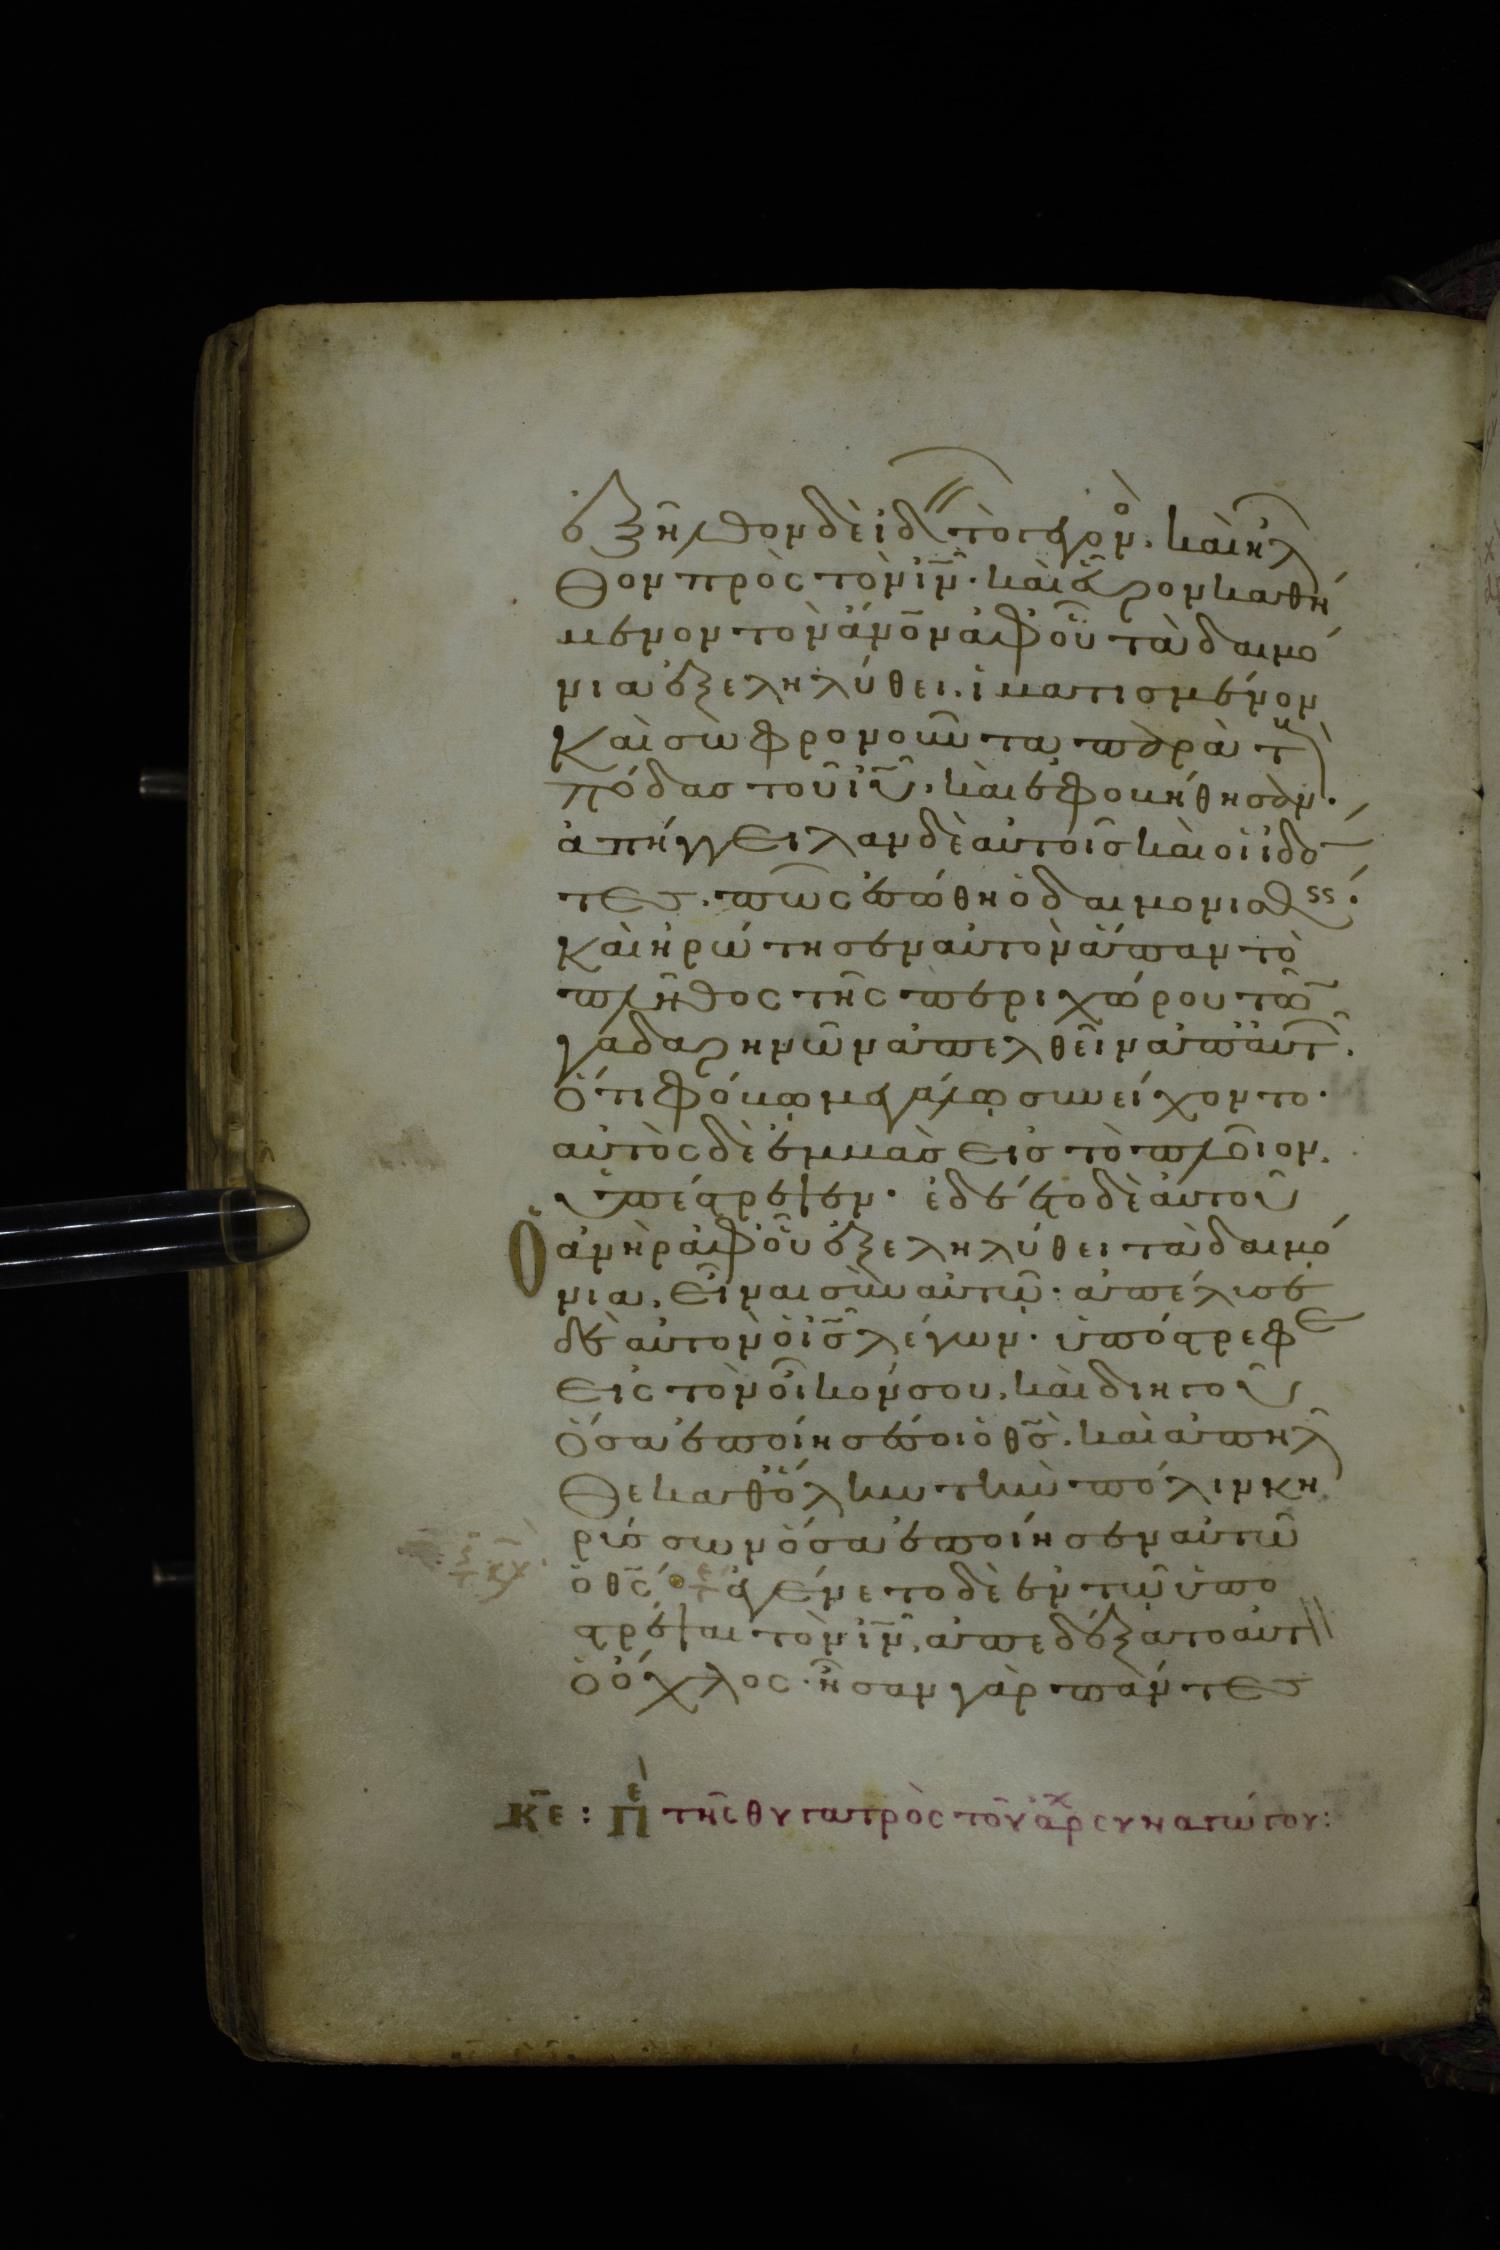 ἐξῆλθον δὲ ἰδεῖν τὸ γεγονὸς. καὶ ἦλ
θον πρὸς τὸν ἰν̅. καὶ εὗρον καθή
μενον τὸν ἄνο̅ν ἀφ' οὗ τὰ δαιμό
νια ἐξεληλύθει. ἱματισμένον
καὶ σωφρονοῦντα παρὰ τοὺς
πόδας τοῦ ἰυ̅. καὶ ἐφοβήθησαν.
ἀπήγγειλαν δὲ αὐτοῖς καὶ οἱ ἰδό
τες. πῶς ἐσώθη ὁ δαιμονισθείς.
καὶ ἠρώτησεν αὐτὸν ἅπαν τὸ
πλῆθος τῆς περιχώρου τῶν
γαδαρηνῶν ἀπελθεῖν ἀπ' αὐτ̅.
ὅτι φόβῳ μεγάλῳ συνείχοντο.
αὐτὸς δὲ ἐμβὰς εἰς τὸ πλοῖον.
ὑπέστρεψεν. ἐδέετο δὲ αὐτοῦ
ὁ ἀνὴρ ἀφ' οὗ ἐξεληλύθει τὰ δαιμό
νια. εἶναι σὺν αὐτῷ. ἀπέλυσε
δὲ αὐτὸν ὁ ις̅ λέγων. ὑπόστρεφε
εἰς τὸν οἶκόν σου. καὶ διηγοῦ
ὅσα ἐποίησέ σοι ὁ θς̅. καὶ ἀπῆλ
θε καθ' ὅλην τὴν πόλιν κη
ρύσσων ὅσα ἐποίησεν αὐτῷ
ὁ θς̅ ἐγένετο δὲ ἐν τῷ ὑπο
στρέψαι τὸν ἰν̅. ἀπεδέξατο αὐτὸν
ὁ ὄχλος. ἦσαν γὰρ πάντες
κε̅ : πε τῆς θυγατρὸς τοῦ ἀρχ συναγώγου: